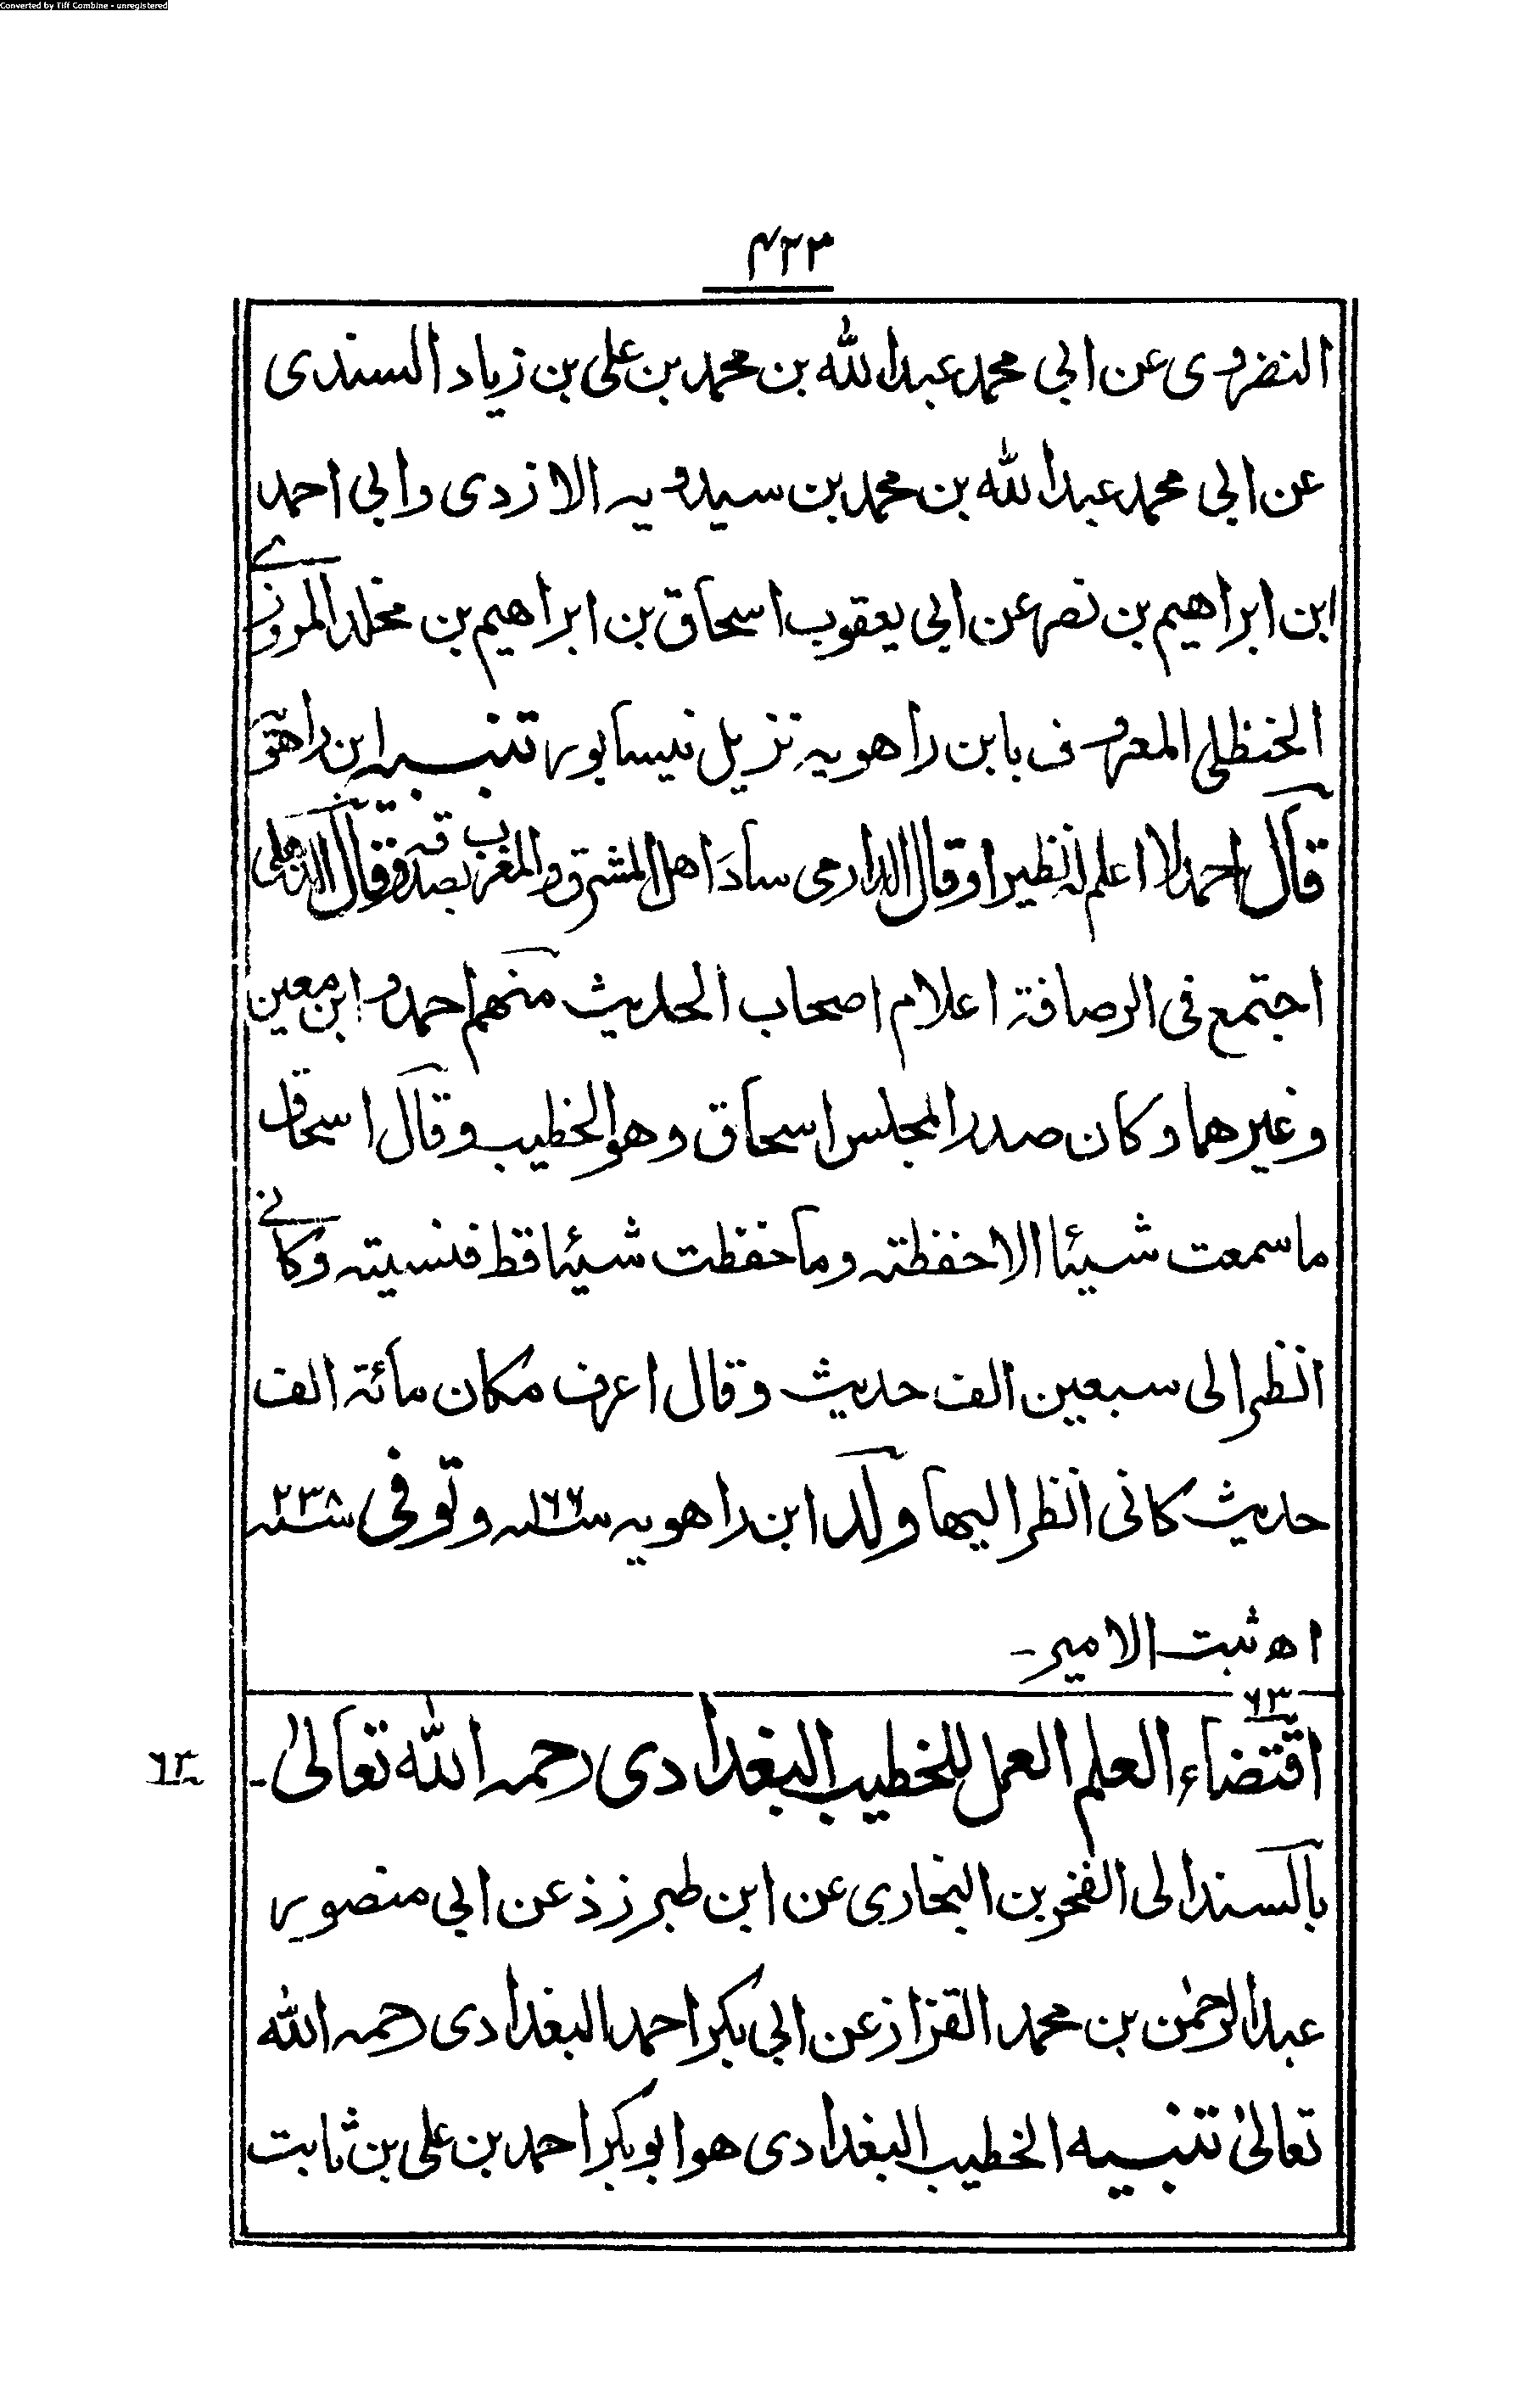 Converted by Tiff Combine - unregistered
۴۳۳
النضروی عن ابی محمد عبد الله بن محمد بن علی بن زیاد السندی
عن ابی محمد عبد الله بن محمد بن سیدویہ الازدی وابی احمد
ابن ابراهیم بن نصر عن ابی یعقوب اسحاق بن ابراهیم بن مخلد المروزے
الحنظلی المعروف بابن راهویہ نزیل نیسابور تنبیہ ابن راهویہ
قال احمد لا اعلم لہ نظیرا وقال الدارمی سادَ اهل المشرق والمغرب بصدقہ وقال
اجتمع فی الرصافة اعلام اصحاب الحدیث منهم احمد و ابن معین
وغیرهما وکان صدر المجلس اسحاق وهو الخطیب وقال اسحاق
ما سمعت شیئا الا حفظتہ وما حفظت شیئا قط فنسیتہ وکانے
انظر الی سبعین الف حدیث وقال اعرف مکان مائة الف
حدیث کانی انظر الیها ولد ابن راهویہ سنہ ۱۶۶ وتوفی سنہ ۲۳۸
اھ ثبت الامیر۔
۶۳
اقتضاء العلم العمل للخطیب البغدادی رحمہ اللہ تعالیٰ۔
۶۳
بالسند الی الفخر بن البخاری عن ابن طبرزذ عن ابی منصور
عبد الرحمٰن بن محمد القزاز عن ابی بکر احمد البغدادی رحمہ الله
تعالیٰ تنبیہ الخطیب البغدادی هو ابو بکر احمد بن علی بن ثابت